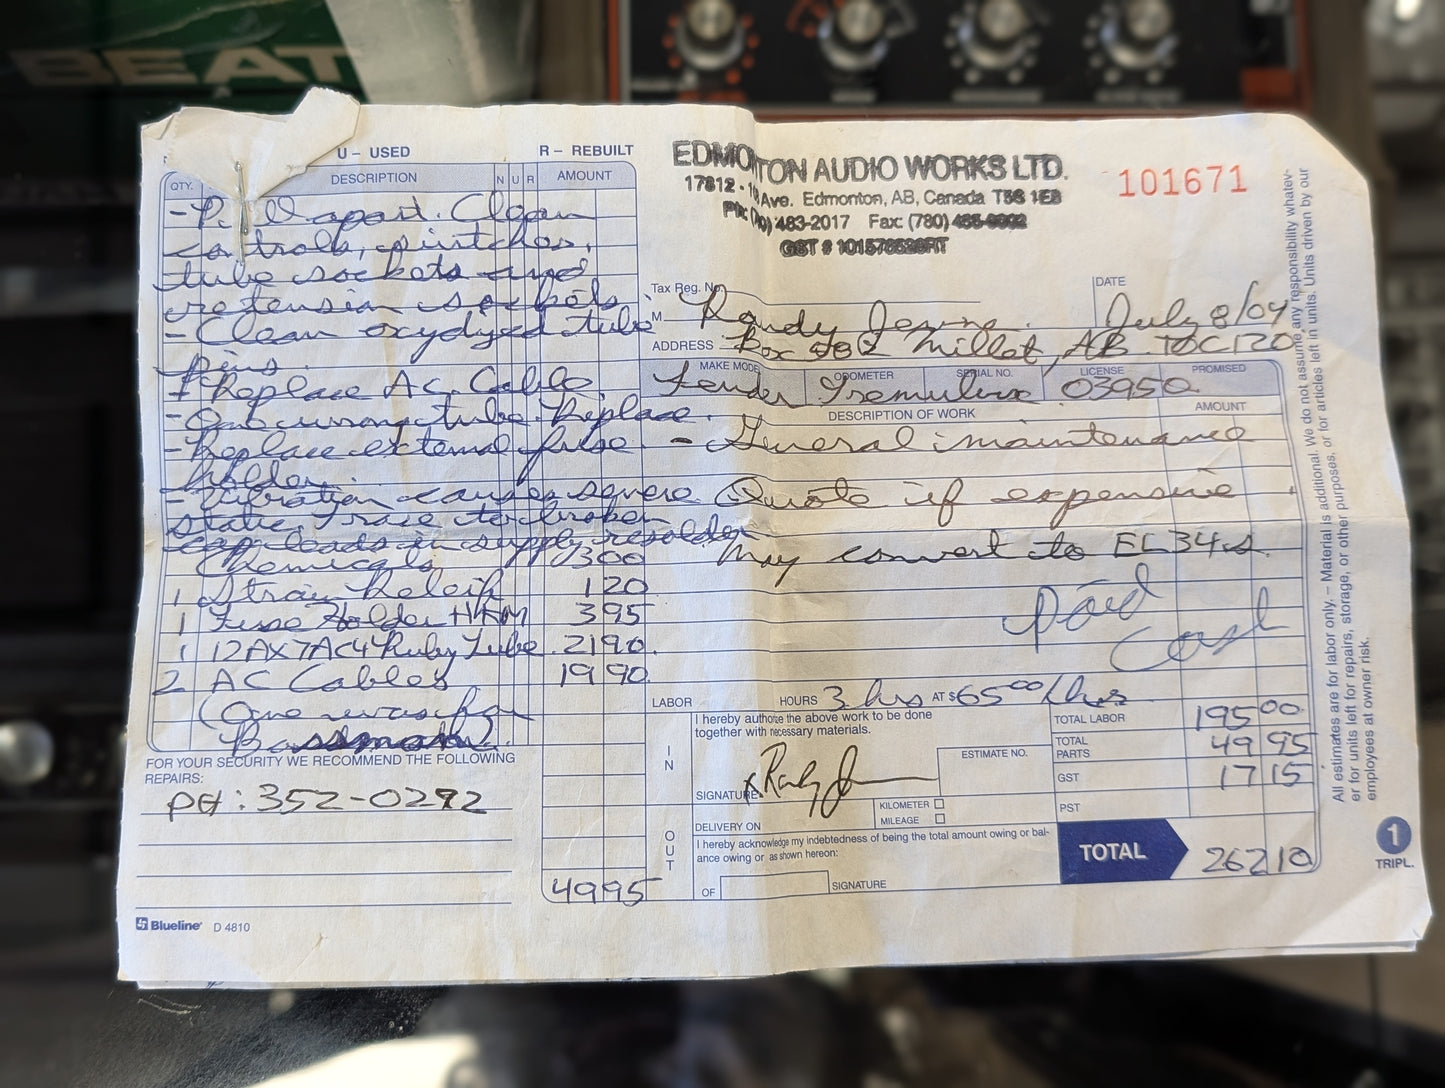 BEAT
U – USED
R – REBUILT
QTY. DESCRIPTION N U R AMOUNT
- apart. Clean
controls, switches,
tube sockets and
retension sockets.
- Clean oxydyzed tube
pins.
- Replace A.C. Cable
- One wrong tube. Replace.
- Replace external fuse
holder.
- Vibration causes severe
static. Trace to broken
cap leads in supply resolder
Chemicals 300
1 Strain Releif 120
1 Fuse Holder HKM 395
1 12AX7AC4 Ruby Tube 2190
2 AC Cables 1990
(One was for
Bassman)
FOR YOUR SECURITY WE RECOMMEND THE FOLLOWING
REPAIRS:
PH: 352-0292
4995
Blueline D 4810
EDMONTON AUDIO WORKS LTD.
17812 - Ave. Edmonton, AB, Canada T5S 1E8
483-2017 Fax: (780)
GST #
101671
Tax Reg. No.
DATE
M Randy July 8/04
ADDRESS Box Millet, AB. T0C 1Z0
MAKE MODEL ODOMETER SERIAL NO. LICENSE PROMISED
Fender Tremulux 03950
DESCRIPTION OF WORK AMOUNT
- General maintenance
Quote if expensive
May convert to EL34s.
Paid
Cash
LABOR HOURS 3 hrs AT $ 65 00 / hrs
I hereby authorize the above work to be done
together with necessary materials.
IN
ESTIMATE NO.
SIGNATURE x
KILOMETER
MILEAGE
DELIVERY ON
OUT
I hereby acknowledge my indebtedness of being the total amount owing or bal-
ance owing or as shown hereon:
OF SIGNATURE
TOTAL LABOR 195 00
TOTAL PARTS 49 95
GST 17 15
PST
TOTAL 262 10
1
TRIPL.
All estimates are for labor only. – Material is additional. We do not assume any responsibility whatev-
er for units left for repairs, storage, or other purposes, or for articles left in units. Units driven by our
employees at owner risk.